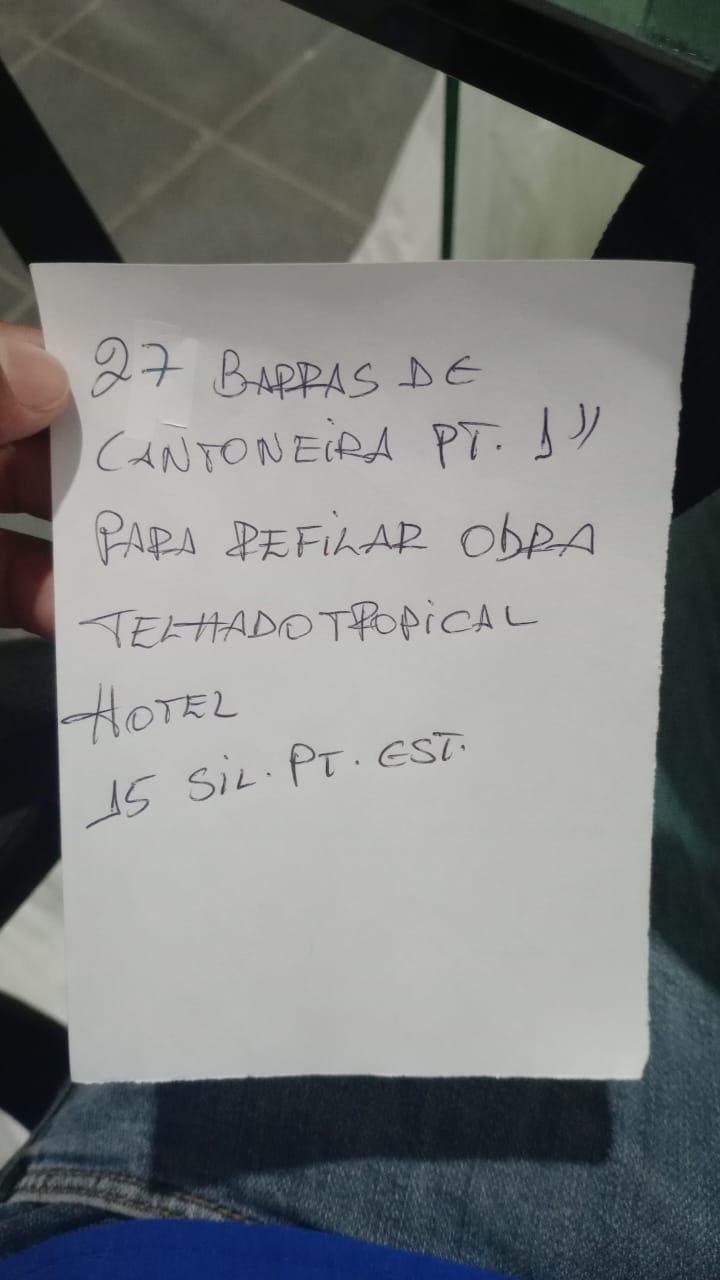 27 BARRAS DE
CANTONEIRA PT. 1"
PARA REFILAR OBRA
TELHADO TROPICAL
HOTEL
15 SIL. PT. EST.